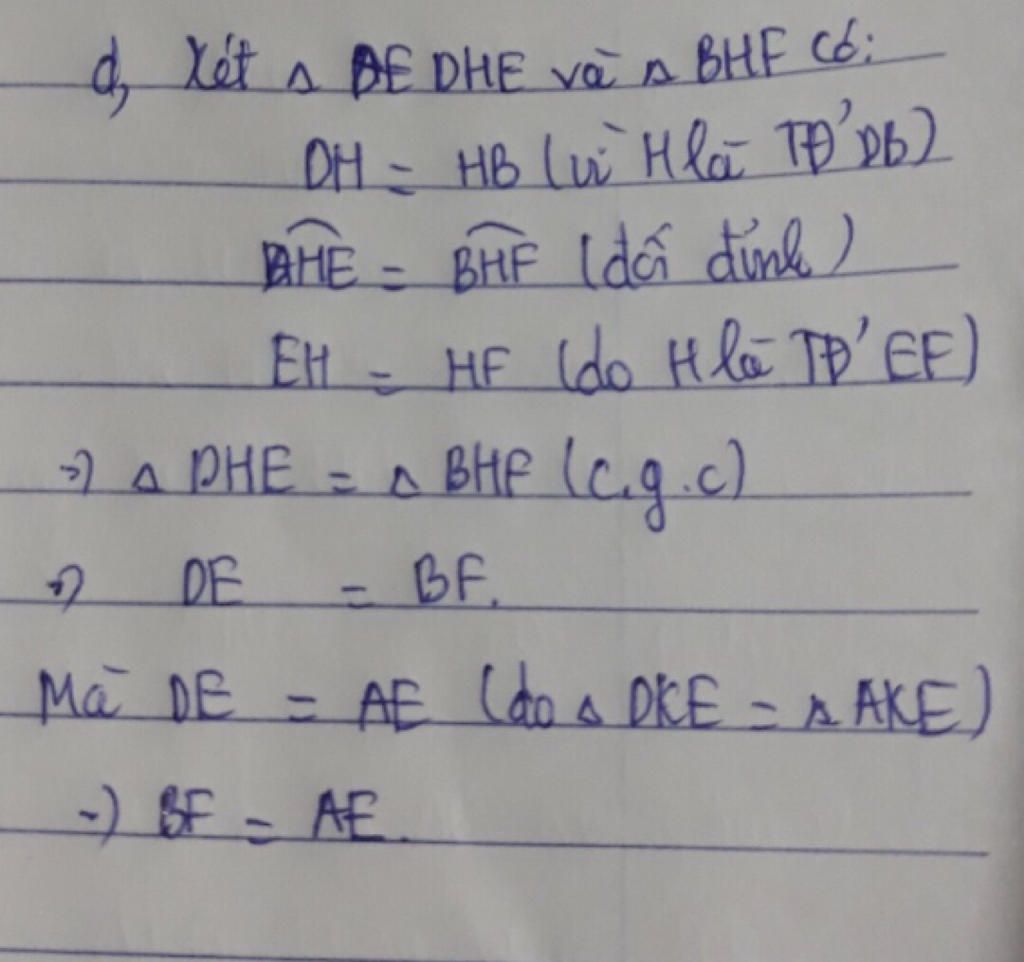 d, Xét △ DHE và △ BHF có:
DH = HB (vì H là TĐ' DB)
DHE = BHF (đối đỉnh)
EH = HF (do H là TĐ' EF)
=> △ DHE = △ BHF (c.g.c)
=> DE = BF.
Mà DE = AE (do △ DKE = △ AKE)
=> BF = AE.